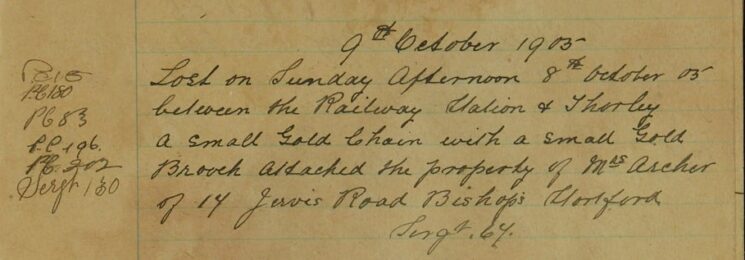 9th October 1905
Lost on Sunday Afternoon 8th October 05
between the Railway Station & Thorley
a small Gold Chain with a small Gold
Brooch attached the property of Mrs Archer
of 14 Jervis Road Bishops Stortford
Sergt. 64.
P.C. 15
P.C. 180
PC 83
P.C. 196.
PC. 202
Sergt 130